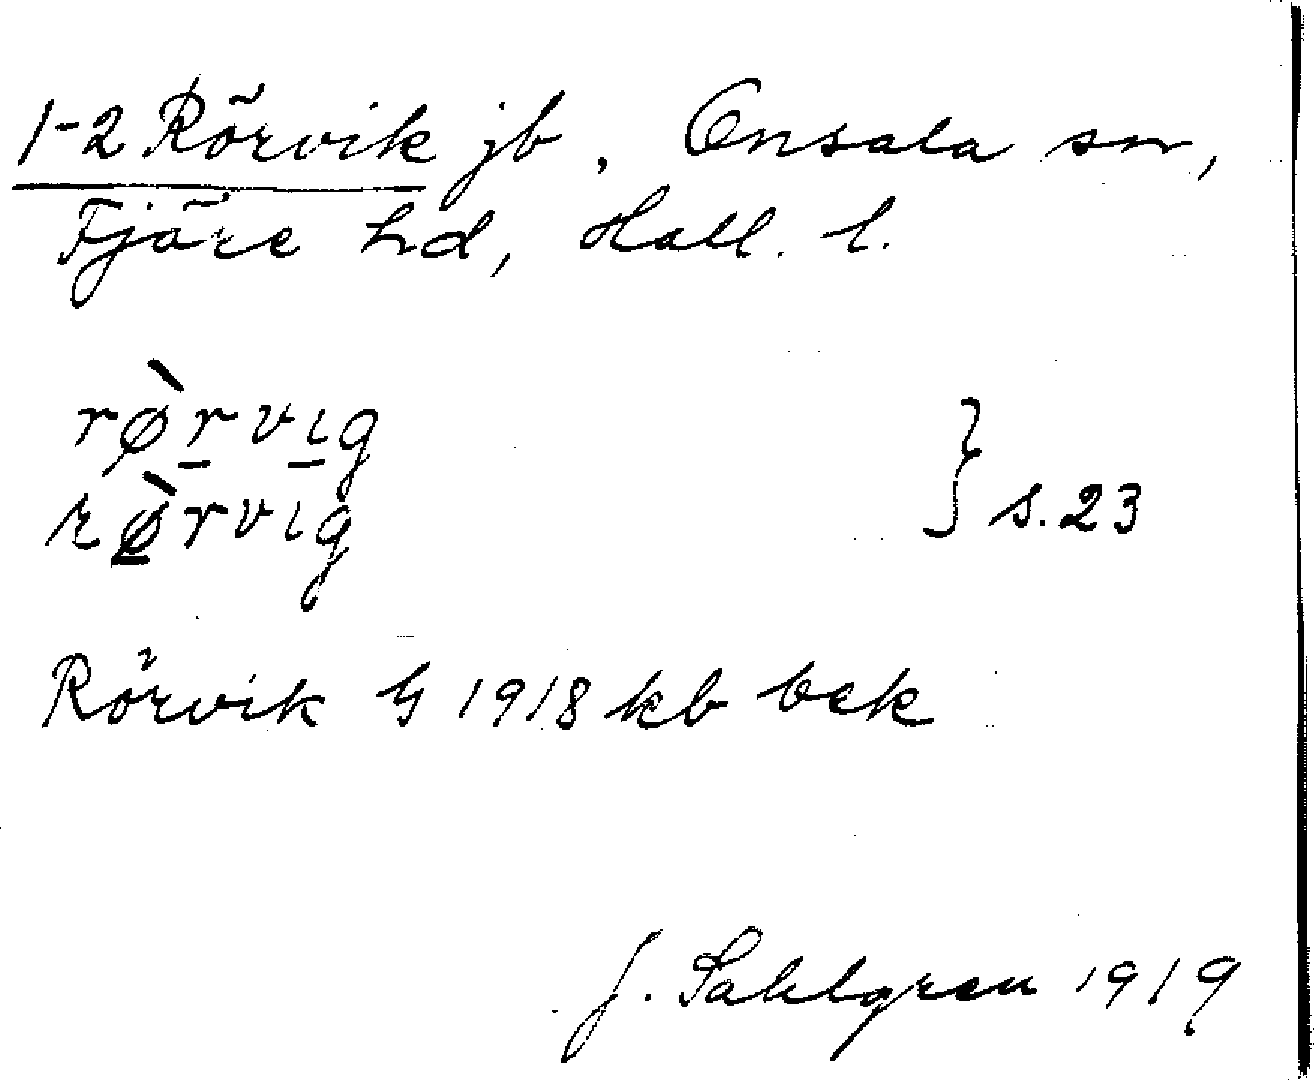 1-2 Rörvik jb, Onsala sn,
Fjäre hd, Hall. l.
rø̀rvıg
rø̀rvıg } s. 23
Rörvik 1918 kb bek
J. Sahlgren 1919